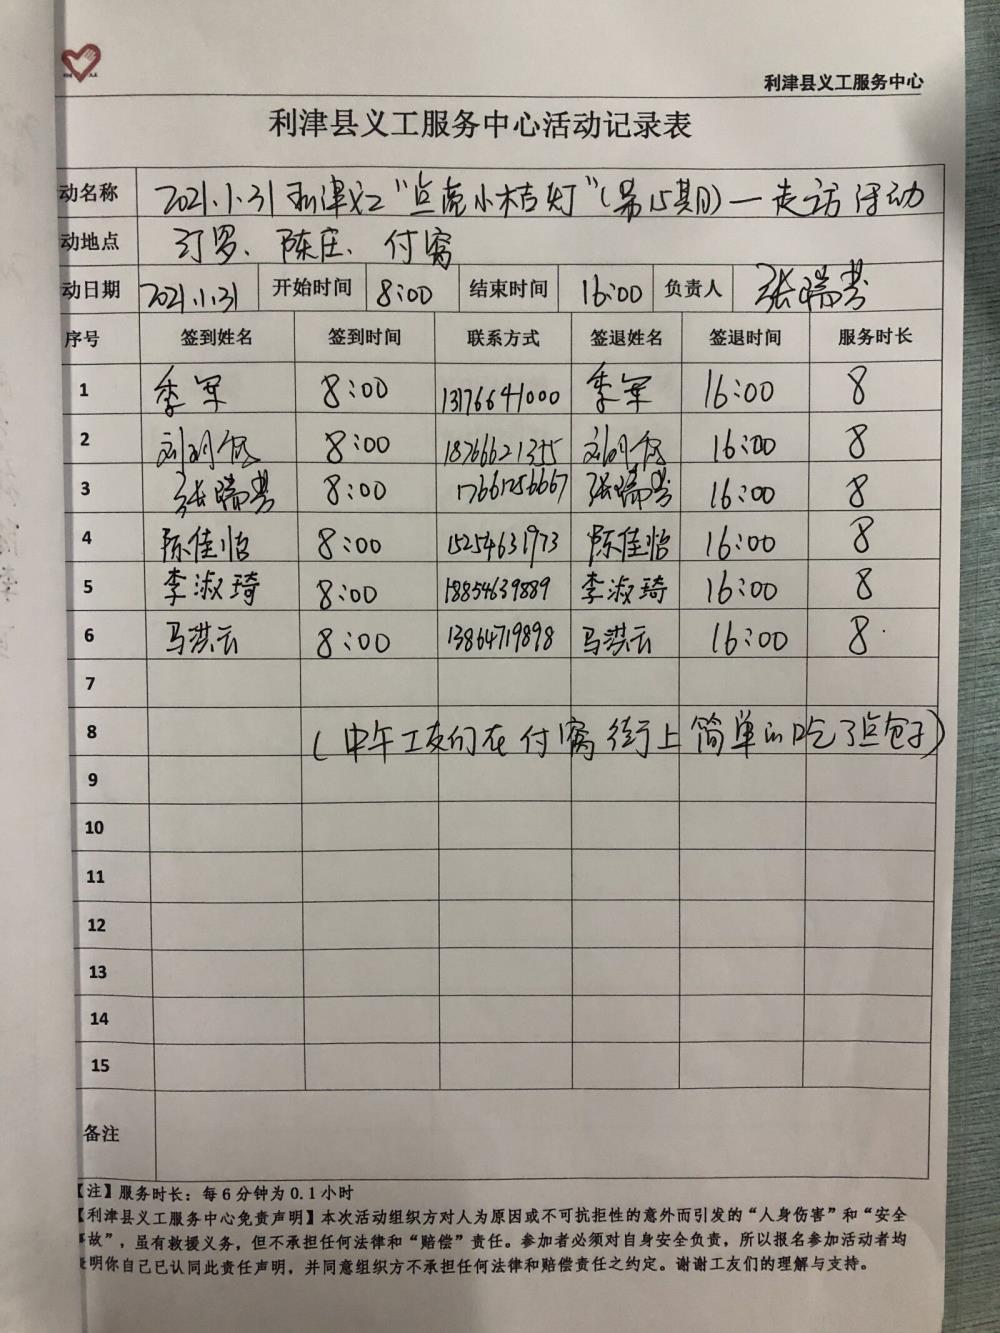 利津县义工服务中心
利津县义工服务中心活动记录表
动名称 2021.1.31利津义工“点亮小桔灯”(第15期)—走访活动
动地点 汀罗、陈庄、付窝
动日期 2021.1.31 开始时间 8:00 结束时间 16:00 负责人 张瑞芳
序号 签到姓名 签到时间 联系方式 签退姓名 签退时间 服务时长
1 季军 8:00 13176641000 季军 16:00 8
2 刘明保 8:00 18766621355 刘明保 16:00 8
3 张瑞芳 8:00 17661256667 张瑞芳 16:00 8
4 陈佳怡 8:00 15254631973 陈佳怡 16:00 8
5 李淑琦 8:00 18854639889 李淑琦 16:00 8
6 马洪云 8:00 13864719898 马洪云 16:00 8
7
8 (中午工友们在付窝街上简单的吃了点包子)
9
10
11
12
13
14
15
备注
【注】服务时长：每6分钟为0.1小时
【利津县义工服务中心免责声明】本次活动组织方对人为原因或不可抗拒性的意外而引发的“人身伤害”和“安全
事故”，虽有救援义务，但不承担任何法律和“赔偿”责任。参加者必须对自身安全负责，所以报名参加活动者均
表明你自己已认同此责任声明，并同意组织方不承担任何法律和赔偿责任之约定。谢谢工友们的理解与支持。